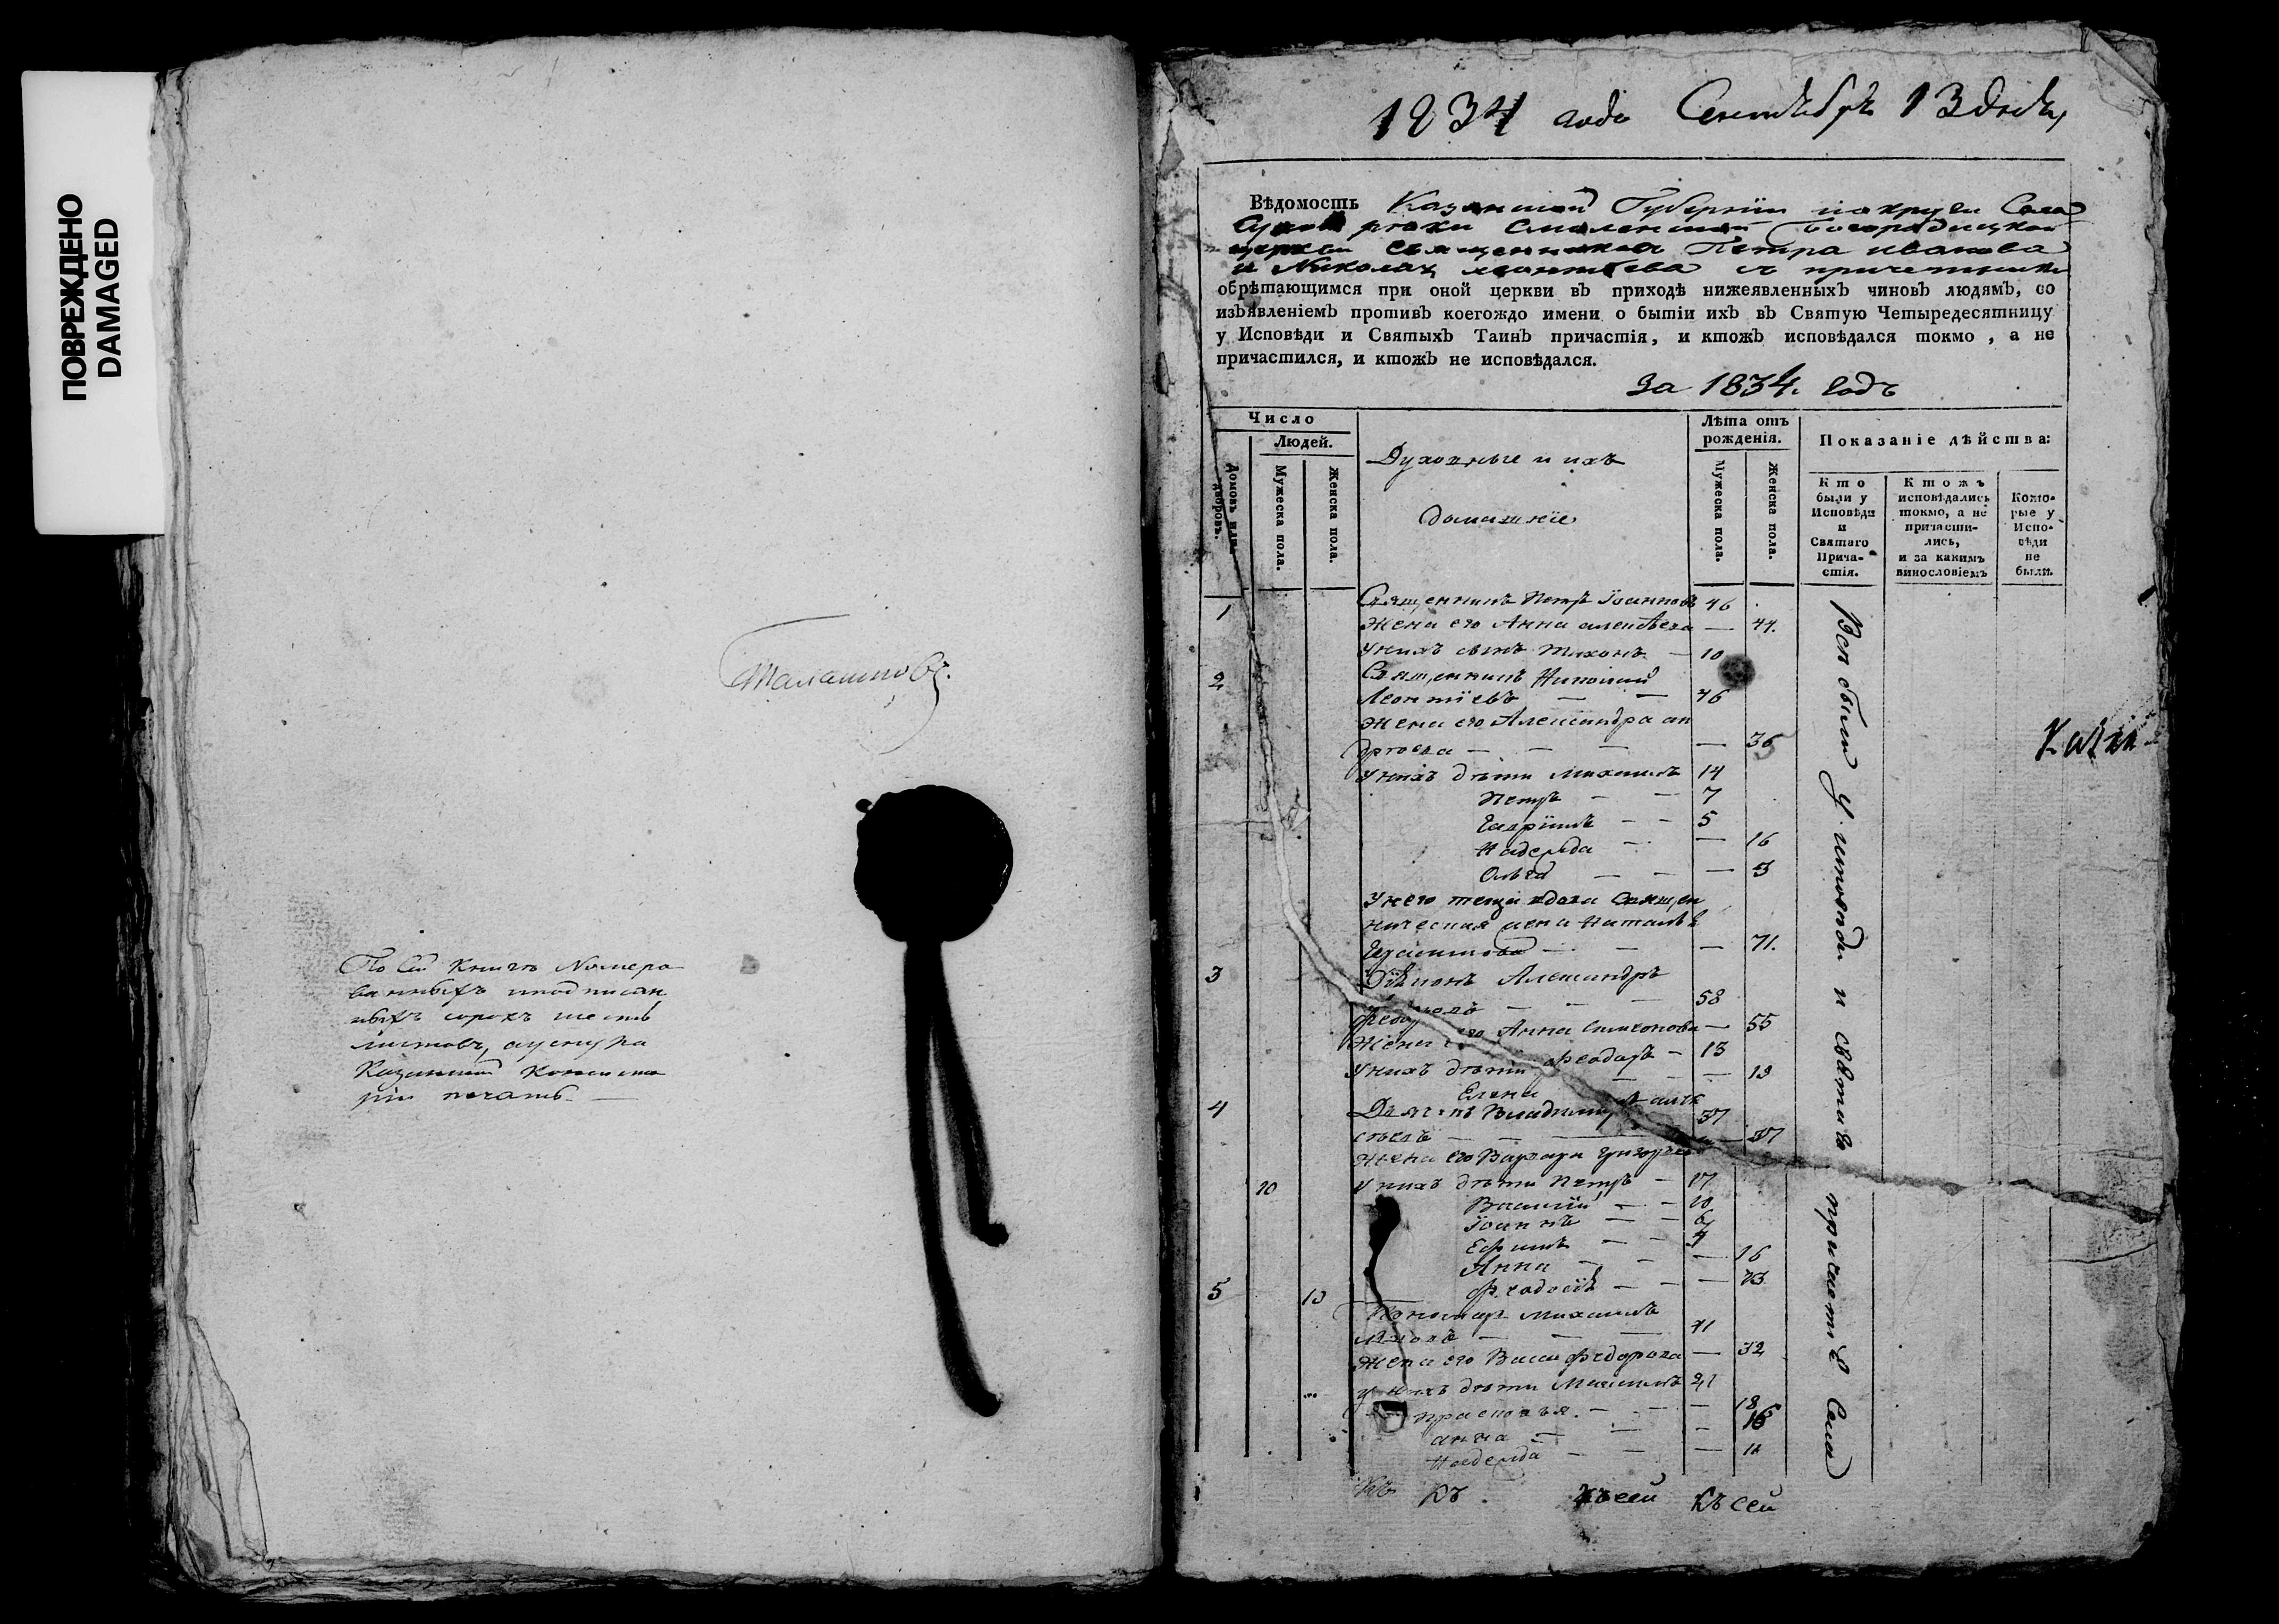 ПОВРЕЖДЕНО
DAMAGED
По сей Книге Номеро
ванныхъ и подписан
ныхъ сорокъ шесть
листовъ, а у снура
Казанской Консисто
ріи печать.
1834 года Сентября 13 дня,
Вѣдомость Казанской Губерніи округи Села
рѣки Смоленской Богородицкой
церкви священника Петра Иванова
и Николая Леонтьева съ причетники
обрѣтающимся при оной церкви въ приходѣ нижеявленныхъ чиновъ людямъ, со
изъявленіемъ противъ коегождо имени о бытіи ихъ въ Святую Четыредесятницу
у Исповѣди и Святыхъ Таинъ причастія, и ктожъ исповѣдался токмо, а не
причастился, и ктожъ не исповѣдался.
за 1834. годъ
Число
Людей.
Домовъ или дворовъ.
Мужеска пола.
Женска пола.
Духовные и ихъ
домашніе
Лѣта отъ
рожденія.
Мужеска пола.
Женска пола.
Показаніе дѣйства:
Кто
были у
Исповѣди
и
Святаго
Прича-
стія.
Ктожъ
исповѣдались
токмо, а не
причасти-
лись,
и за какимъ
винословіемъ
Кото-
рые у
Испо-
вѣди
не
были.
1 Священникъ Петръ Іоанновъ 46
Жена его Анна Алексѣева — 44.
У нихъ сынъ Тихонъ — 10
2 Священникъ Николай
Леонтіевъ — — 46
Жена его Александра ан
дреева — — — — 36
У нихъ дѣти Михаилъ 14
Петръ — — 7
Гавріилъ — — 5
Надежда — — 16
Ольга — — — 3
У него теща вдова Священ
ническая жена Наталья
— — — 71.
3 Діаконъ Александръ
Федоровъ — — — 58
Жена его Анна Симеонова — 55
У нихъ дѣти Феодоръ — 13
Елена — — — 19
4 Дьячекъ Владимиръ Алек
сѣевъ — — — 37
Жена его Варвара Григорьева — 37
10 У нихъ дѣти Петръ — 17
Василій — — 10
Іоаннъ — — 6
Ефимъ — —
Анна — — — 16
Феодосія — — — 13
5 10 Пономарь Михаилъ
— — — 41
Жена его Васса Федорова — 32
у нихъ дѣти Михаилъ 21
Прасковья. — — — 18
анна — — — 16
Надежда — — — 12
Всѣ были у исповѣди и святаго причастія Села
Къ Къ Къ сей Къ сей